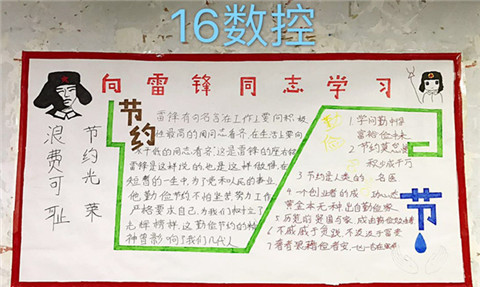 16数控
向雷锋同志学习
节约光荣
浪费可耻
节约
雷锋有句名言在工作上要向积极
性最高的同志看齐,在生活上要向
水平最低的同志看齐,这是雷锋的座右铭
雷锋是这样说的,他也是这样做的,在
短暂的一生中为了党和人民的事业
他勤俭节约不怕
工作
严格要求自己,为我们树立了
光辉榜样,这勤俭节约的精
神曾影响了我们几代人
1 学问勤中得
富裕俭中来
2 节约莫怠慢
积少成千万
3 节约是人类的
名医
4 一个创业者的成功
黄金本无种出自勤俭家
5 历览前贤国与家 成由勤俭
6 不戚戚于贫贱 不汲汲于富贵
7
节